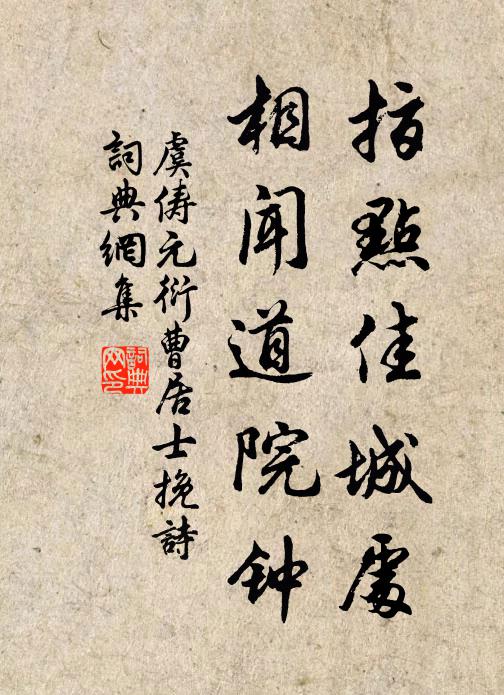 指點佳城處
相闻道院钟
虞儔元衍曹居士挽詩
詞典網集
詞典网印